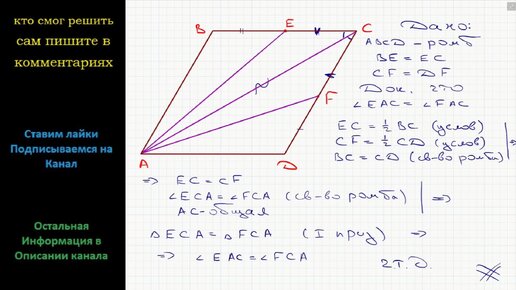 кто смог решить
сам пишите в
комментариях
Ставим лайки
Подписываемся на
Канал
Остальная
Информация в
Описании канала
B
E
C
F
A
D
Дано:
ABCD - ромб
BE = EC
CF = DF
Док. что
∠EAC = ∠FAC
EC = ½ BC (услов)
CF = ½ CD (услов)
BC = CD (св-во ромба)
=> EC = CF
∠ECA = ∠FCA (св-во ромба)
AC - общая
=>
△ECA = △FCA (I приз) =>
=> ∠EAC = ∠FCA
ч.т.д.